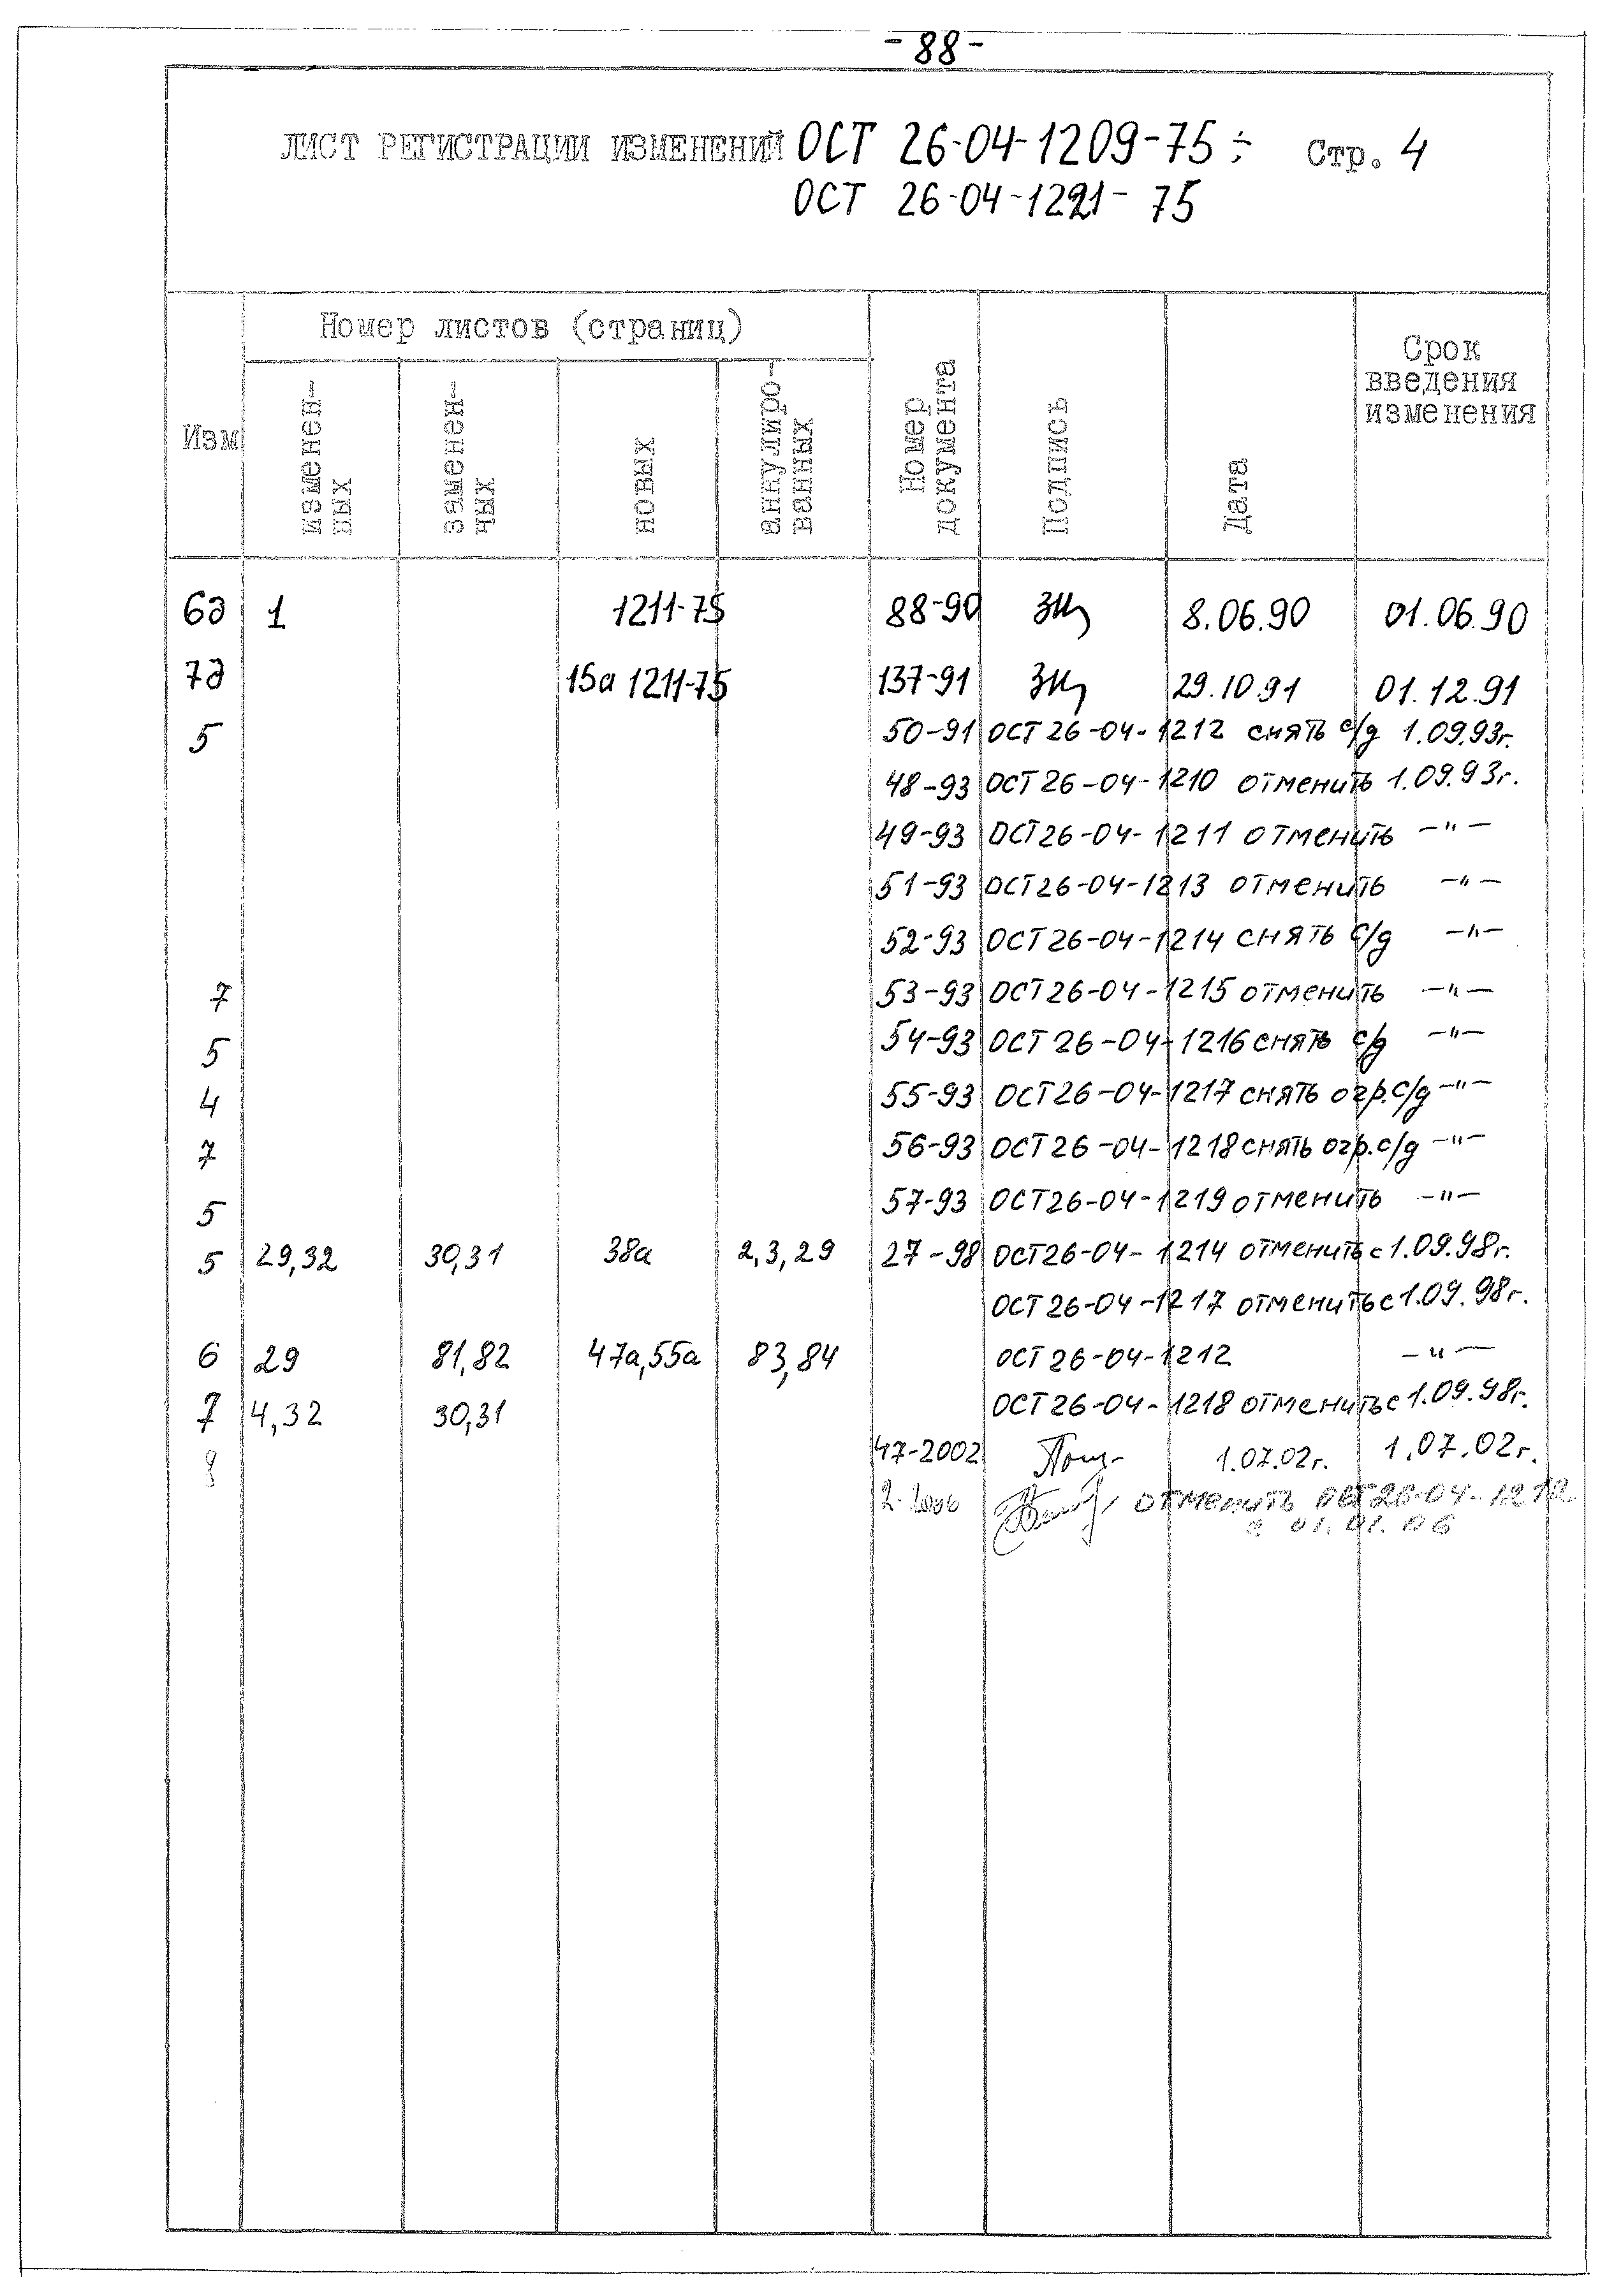 -88-
ЛИСТ РЕГИСТРАЦИИ ИЗМЕНЕНИЙ ОСТ 26-04-1209-75 ÷ Стр. 4
ОСТ 26-04-1221-75
Изм
Номер листов (страниц)
изменен-
ных
заменен-
ных
новых
аннулиро-
ванных
Номер
документа
Подпись
Дата
Срок
введения
изменения
6д 1 1211-75 88-90 8.06.90 01.06.90
7д 15а 1211-75 137-91 29.10.91 01.12.91
5 50-91 ОСТ 26-04-1212 снять с/д 1.09.93г.
48-93 ОСТ 26-04-1210 отменить 1.09.93г.
49-93 ОСТ 26-04-1211 отменить -"-
51-93 ОСТ 26-04-1213 отменить -"-
52-93 ОСТ 26-04-1214 снять с/д -"-
7 53-93 ОСТ 26-04-1215 отменить -"-
5 54-93 ОСТ 26-04-1216 снять с/д -"-
4 55-93 ОСТ 26-04-1217 снять огр. с/д -"-
7 56-93 ОСТ 26-04-1218 снять огр. с/д -"-
5 57-93 ОСТ 26-04-1219 отменить -"-
5 29,32 30,31 38а 2,3,29 27-98 ОСТ 26-04-1214 отменить с 1.09.98г.
ОСТ 26-04-1217 отменить с 1.09.98г.
6 29 81,82 47а,55а 83,84 ОСТ 26-04-1212 -"-
7 4,32 30,31 ОСТ 26-04-1218 отменить с 1.09.98г.
8 47-2002 1.07.02г. 1.07.02г.
2-2006 отменить ОСТ 26-04-1212
с 01.01.06